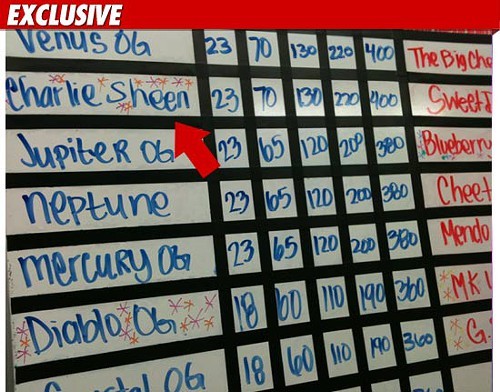 EXCLUSIVE
Venus OG 23 70 130 220 400 The Big
Charlie Sheen 23 70 130 220 400
Jupiter OG 23 65 120 200 380 Blueberry
Neptune 23 65 120 200 380
Mercury OG 23 65 120 200 380 Mendo
Diablo OG 18 60 110 190 360 MK
OG 18 60 110 190 360 G.